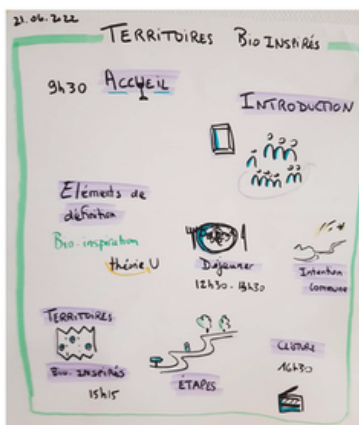 21.06.2022
TERRITOIRES BIO INSPIRÉS
9h30 ACCUEIL
INTRODUCTION
Eléments de
définition
Bio-inspiration
théorie U
Déjeuner
12h30-13h30
Intention
commune
TERRITOIRES
BIO-INSPIRÉS
15h15
ÉTAPES
CLÔTURE
16h30